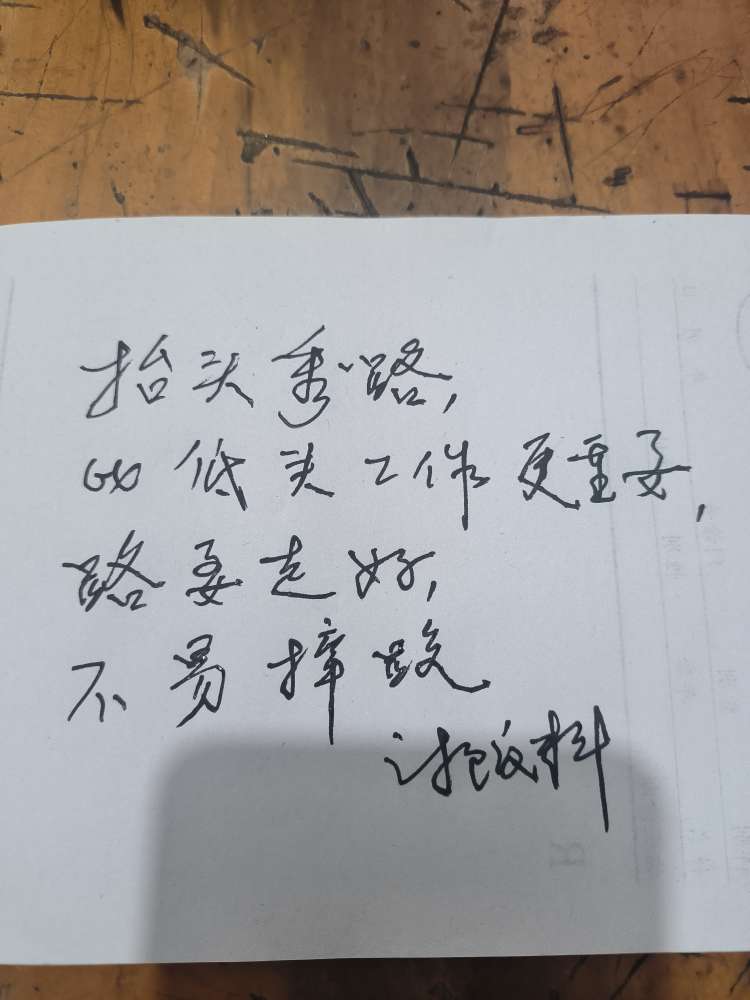 抬头看路,
比低头工作更重要,
路要走好,
不易摔跤